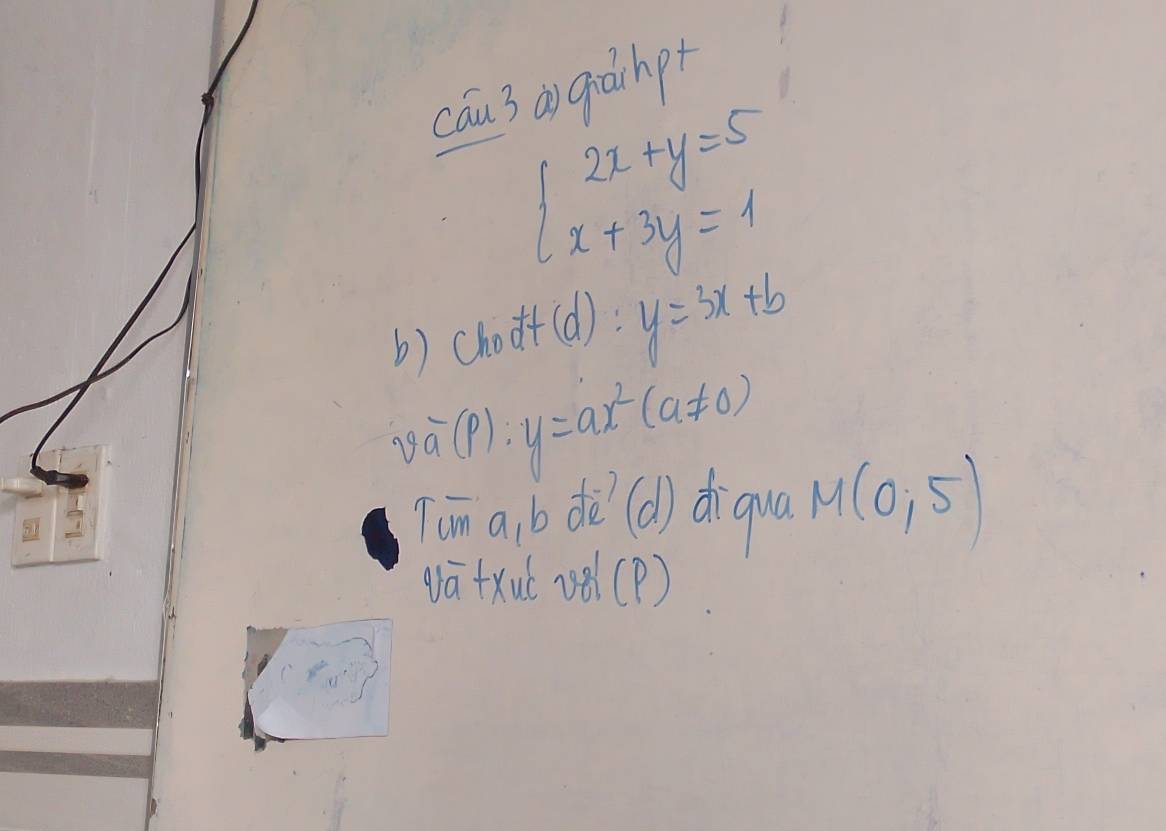 Câu 3 a) giải hpt
2x + y = 5
x + 3y = 1
b) Cho đt (d) : y = 3x + b
và (P) : y = ax² (a ≠ 0)
Tìm a, b để (d) đi qua M(0; 5)
và txúc với (P)